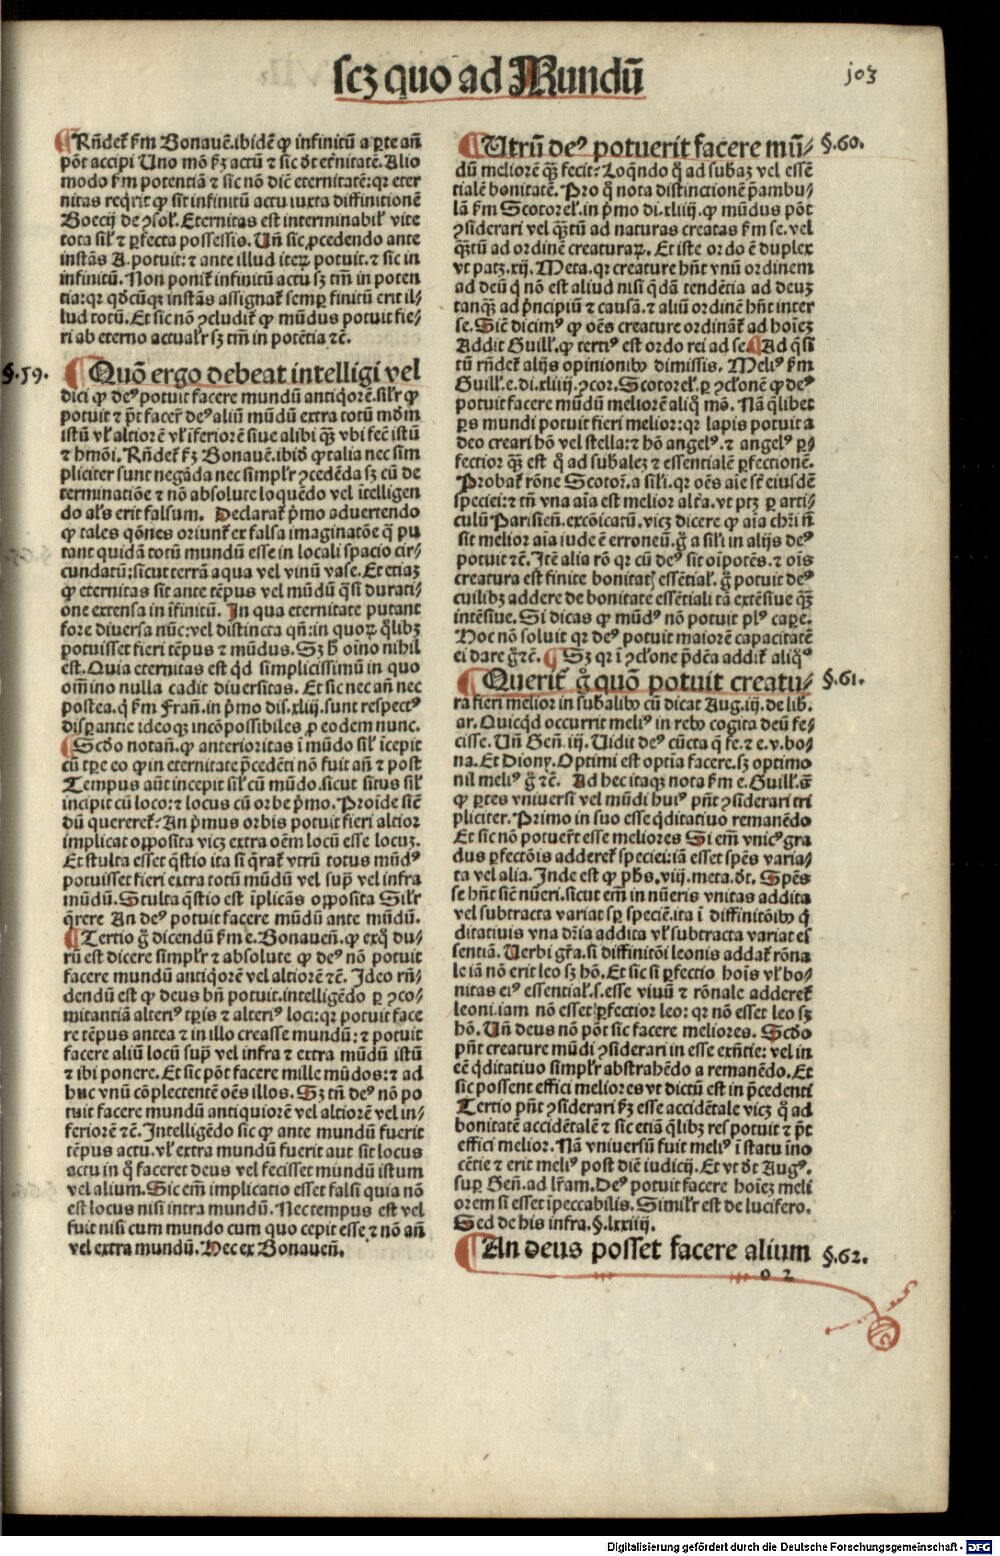 scꝫ quo ad Mundū
103
¶ Rñdet̃ ẜm Bonauē.ibidē ꝙ infinitū a ꝑte añ
pōt accipi Uno mō ẜꝫ actū ⁊ sic dr̄ et̃nitatē.Alio
modo ẜm potentiā ⁊ sic nō diē eternitatē:qr eter
nitas reqrit ꝙ sit infinitū actu iuxta diffinitionē
Boecij de ꝯsol̃.Eternitas est interminabil̃ vite
tota sil̃ ⁊ ꝑfecta possessio.Uñ sic ꝓcedendo ante
instās A.potuit:⁊ ante illud iteꝝ potuit.⁊ sic in
infinitū.Non ponit̃ infinitū actu sꝫ tm̄ in poten
tia:qr qōcūqꝫ instās assignat̃ semꝑ finitū erit il⸗
lud totū.Et sic nō ꝯcludit̃ ꝙ mūdus potuit fie⸗
ri ab eterno actual̃r sꝫ tm̄ in potētia ⁊c̄.
§.59. ¶ Quō ergo debeat intelligi vel
dici ꝙ deꝰ potuit facere mundū antiqorē.sil̃r ꝙ
potuit ⁊ pōt facer̄ deꝰ aliū mūdū extra totū mōm
istū vl̃ altiorē vl̃ īferiorē siue alibi qꝫ̄ vbi fec̄ istū
⁊ hmōi.Rñdet̃ ẜꝫ Bonauē.ibid̄ ꝙ talia nec sim
pliciter sunt negāda nec simpl̃r ꝯcedēda sꝫ cū de
terminatiōe ⁊ nō absolute loquēdo vel ītelligen
do al̃s erit falsum. Declarat̃ p̄mo aduertendo
ꝙ tales qōnes oriunt̃ ex falsa imaginatōe q̄ pu
tant quidā totū mundū esse in locali spacio cir⸗
cundatū:sicut terrā aqua vel vinū vase.Et etiaꝫ
ꝙ eternitas sit ante tēpus vel mūdū q̄si durati⸗
one extensa in īfinitū. In qua eternitate putant
fore diuersa nūc:vel distincta qñ:in quoꝝ q̄libꝫ
potuisset fieri tēpus ⁊ mūdus.Sꝫ h̄ oīno nihil
est.Quia eternitas est qd̄ simplicissimū in quo
om̄ino nulla cadit diuersitas. Et sic nec añ nec
postea.q̄ ẜm Frañ.in p̄mo dis.xliij.sunt respectꝰ
disꝑantie ideoqꝫ incōpossibiles ꝓ eodem nunc.
¶ Scd̄o notañ.ꝙ anterioritas ī mūdo sil̃ īcepit
cū tꝑe eo ꝙ in eternitate p̄cedēti nō fuit añ ⁊ post
Tempus aūt incepit sil̃ cū mūdo.sicut situs sil̃
incipit cū loco:⁊ locus cū orbe p̄mo.Proide siē
dū quereret̃:An p̄mus orbis potuit fieri altior
implicat opposita vicꝫ extra oēm locū esse locuꝫ.
Et stulta esset q̄stio ita si q̄rat̃ vtrū totus mūdꝰ
potuisset fieri extra totū mūdū vel supͣ vel infra
mūdū.Stulta q̄stio est īplicās opposita Sil̃r
q̄rere An deꝰ potuit facere mūdū ante mūdū.
¶ Tertio g̊ dicendū ẜm e.Bonaueñ.ꝙ exq̊ du⸗
rū est dicere simpl̃r ⁊ absolute ꝙ deꝰ nō potuit
facere mundū antiqorē vel altiorē ⁊c̄. Ideo rñ⸗
dendū est ꝙ deus bñ potuit.intelligēdo ꝑ ꝯco⸗
mitantiā alteriꝰ tꝑis ⁊ alteriꝰ loci:qr potuit face
re tēpus antea ⁊ in illo creasse mundū:⁊ potuit
facere aliū locū supͣ vel infra ⁊ extra mūdū istū
⁊ ibi ponere.Et sic pōt facere mille mūdos:⁊ ad
huc vnū cōplectentē oēs illos.Sꝫ tñ deꝰ nō po
tuit facere mundū antiquiorē vel altiorē vel in⸗
feriorē ⁊c̄.Intelligēdo sic ꝙ ante mundū fuerit
tēpus actu.vl̃ extra mundū fuerit aut sit locus
actu in q̊ faceret deus vel fecisset mundū istum
vel alium.Sic em̄ implicatio esset falsi quia nō
est locus nisi intra mundū. Nec tempus est vel
fuit nisi cum mundo cum quo cepit esse ⁊ nō añ
vel extra mundū. Hec ex Bonaueñ.
¶ Utrū deꝰ potuerit facere mū⸗ §.60.
dū meliorē qꝫ̄ fecit?Loqn̄do q̊ ad subaꝫ vel essē
tialē bonitatē. Pro q̊ nota distinctionē p̄ambu⸗
lā ẜm Scotorel̃.in p̄mo di.xliiij.ꝙ mūdus pōt
ꝯsiderari vel qꝫ̄tū ad naturas creatas ẜm se.vel
qꝫ̄tū ad ordinē creaturaꝝ. Et iste ordo ē duplex
vt patꝫ.xij.Meta.qr creature hñt vnū ordinem
ad deū q̄ nō est aliud nisi q̄dā tendētia ad deuꝫ
tanqꝫ̄ ad p̄ncipiū ⁊ causā.⁊ aliū ordinē hñt inter
se.Siē dicimꝰ ꝙ oēs creature ordināt̃ ad hoīeꝫ
Addit Guill̃.ꝙ tertiꝰ est ordo rei ad se.¶ Ad q̄si
tū rñdet̃ alijs opinionibꝰ dimissis. Meliꝰ ẜm
Guill̃.e.di.xliiij.ꝯcor.Scotorel̃.ꝑ ꝯcl̃onē ꝙ deꝰ
potuit facere mūdū meliorē aliq̊ mō. Nā q̄libet
ꝑs mundi potuit fieri melior:qr lapis potuit a
deo creari hō vel stella:⁊ hō angelꝰ.⁊ angelꝰ ꝑ⸗
fectior qꝫ̄ est q̊ ad subaleꝫ ⁊ essentialē ꝑfectionē.
Probat̃ rōne Scotor̃.a sil̃i.qr oēs aīe st̄ eiusdē
speciei:⁊ tñ vna aīa est melior alt̃a.vt ptꝫ ꝑ arti⸗
culū Parisieñ.excōicatū.vicꝫ dicere ꝙ aīa chr̄i nō
sit melior aīa iude ē erroneū.g̊ a sil̃i in alijs deꝰ
potuit ⁊c̄.Itē alia rō qr cū deꝰ sit oīpotēs.⁊ oīs
creatura est finite bonitatꝭ essētial̃. g̊ potuit deꝰ
cuilibꝫ addere de bonitate essētiali tā extēsiue qꝫ̄
intēsiue. Si dicas ꝙ mūdꝰ nō potuit plꝰ capere.
Hoc nō soluit qr deꝰ potuit maiorē capacitatē
ei dare g̊ ⁊c̄. ¶ Sꝫ qr ī ꝯcl̃one p̄dc̄a addit̃ aliq̊ꝰ
¶ Querit̃ g̊ quō potuit creatu⸗ §.61.
ra fieri melior in subalibꝰ cū dicat Aug.iij.de lib.
ar. Quicqd occurrit meliꝰ in rebꝰ cogita deū fe⸗
cisse. Uñ Geñ.iij. Uidit deꝰ cūcta q̄ fe.⁊ e.v.bo⸗
na.Et Diony. Optimi est optia facere.sꝫ optimo
nil meliꝰ g̊ ⁊c̄. Ad hec itaqꝫ nota ẜm e.Guill̃.s̄
ꝙ ꝑtes vniuersi vel mūdi huiꝰ pñt ꝯsiderari tri
pliciter.Primo in suo esse qditatiuo remanēdo
Et sic nō potuer̄t esse meliores Si em̄ vnicꝰ gra
dus ꝑfectōis adderet̃ speciei:iā esset spēs varia⸗
ta vel alia.Inde est ꝙ pħs.viij.meta.dr̄. Spēs
se hñt siē nūeri.sicut em̄ in nūeris vnitas addita
vel subtracta variat sꝑ speciē.ita ī diffinitōibꝰ q
ditatiuis vna dr̄ia addita vl̃ subtracta variat es
sentiā. Uerbi gr̄a.si diffinitōi leonis addat̃ rōna
le iā nō erit leo sꝫ hō. Et sic si ꝑfectio hoīs vl̃ bo⸗
nitas eiꝰ essential̃.s.esse viuū ⁊ rōnale adderet̃
leoni.iam nō esset ꝑfectior leo: qr nō esset leo sꝫ
hō. Uñ deus nō pōt sic facere meliores. Scd̄o
pñt creature mūdi ꝯsiderari in esse exn̄tie: vel in
ēē qditatiuo simpl̃r abstrahēdo a remanēdo. Et
sic possent effici meliores vt dictū est in p̄cedenti
Tertio pñt ꝯsiderari ẜꝫ esse accidētale vicꝫ q̊ ad
bonitatē accidētalē ⁊ sic etiā q̄libꝫ res potuit ⁊ pōt
effici melior. Nā vniuersū fuit meliꝰ ī statu īno
cētie ⁊ erit meliꝰ post diē iudicij. Et vt dr̄ Augꝰ.
suꝑ Geñ.ad lr̄am.Deꝰ potuit facere hoīeꝫ meli
orem si esset īpeccabilis. Simil̃r est de lucifero.
Sed de his infra.§.lxxiiij.
¶ An deus posset facere alium §.62.
o 2
Digitalisierung gefördert durch die Deutsche Forschungsgemeinschaft - DFG